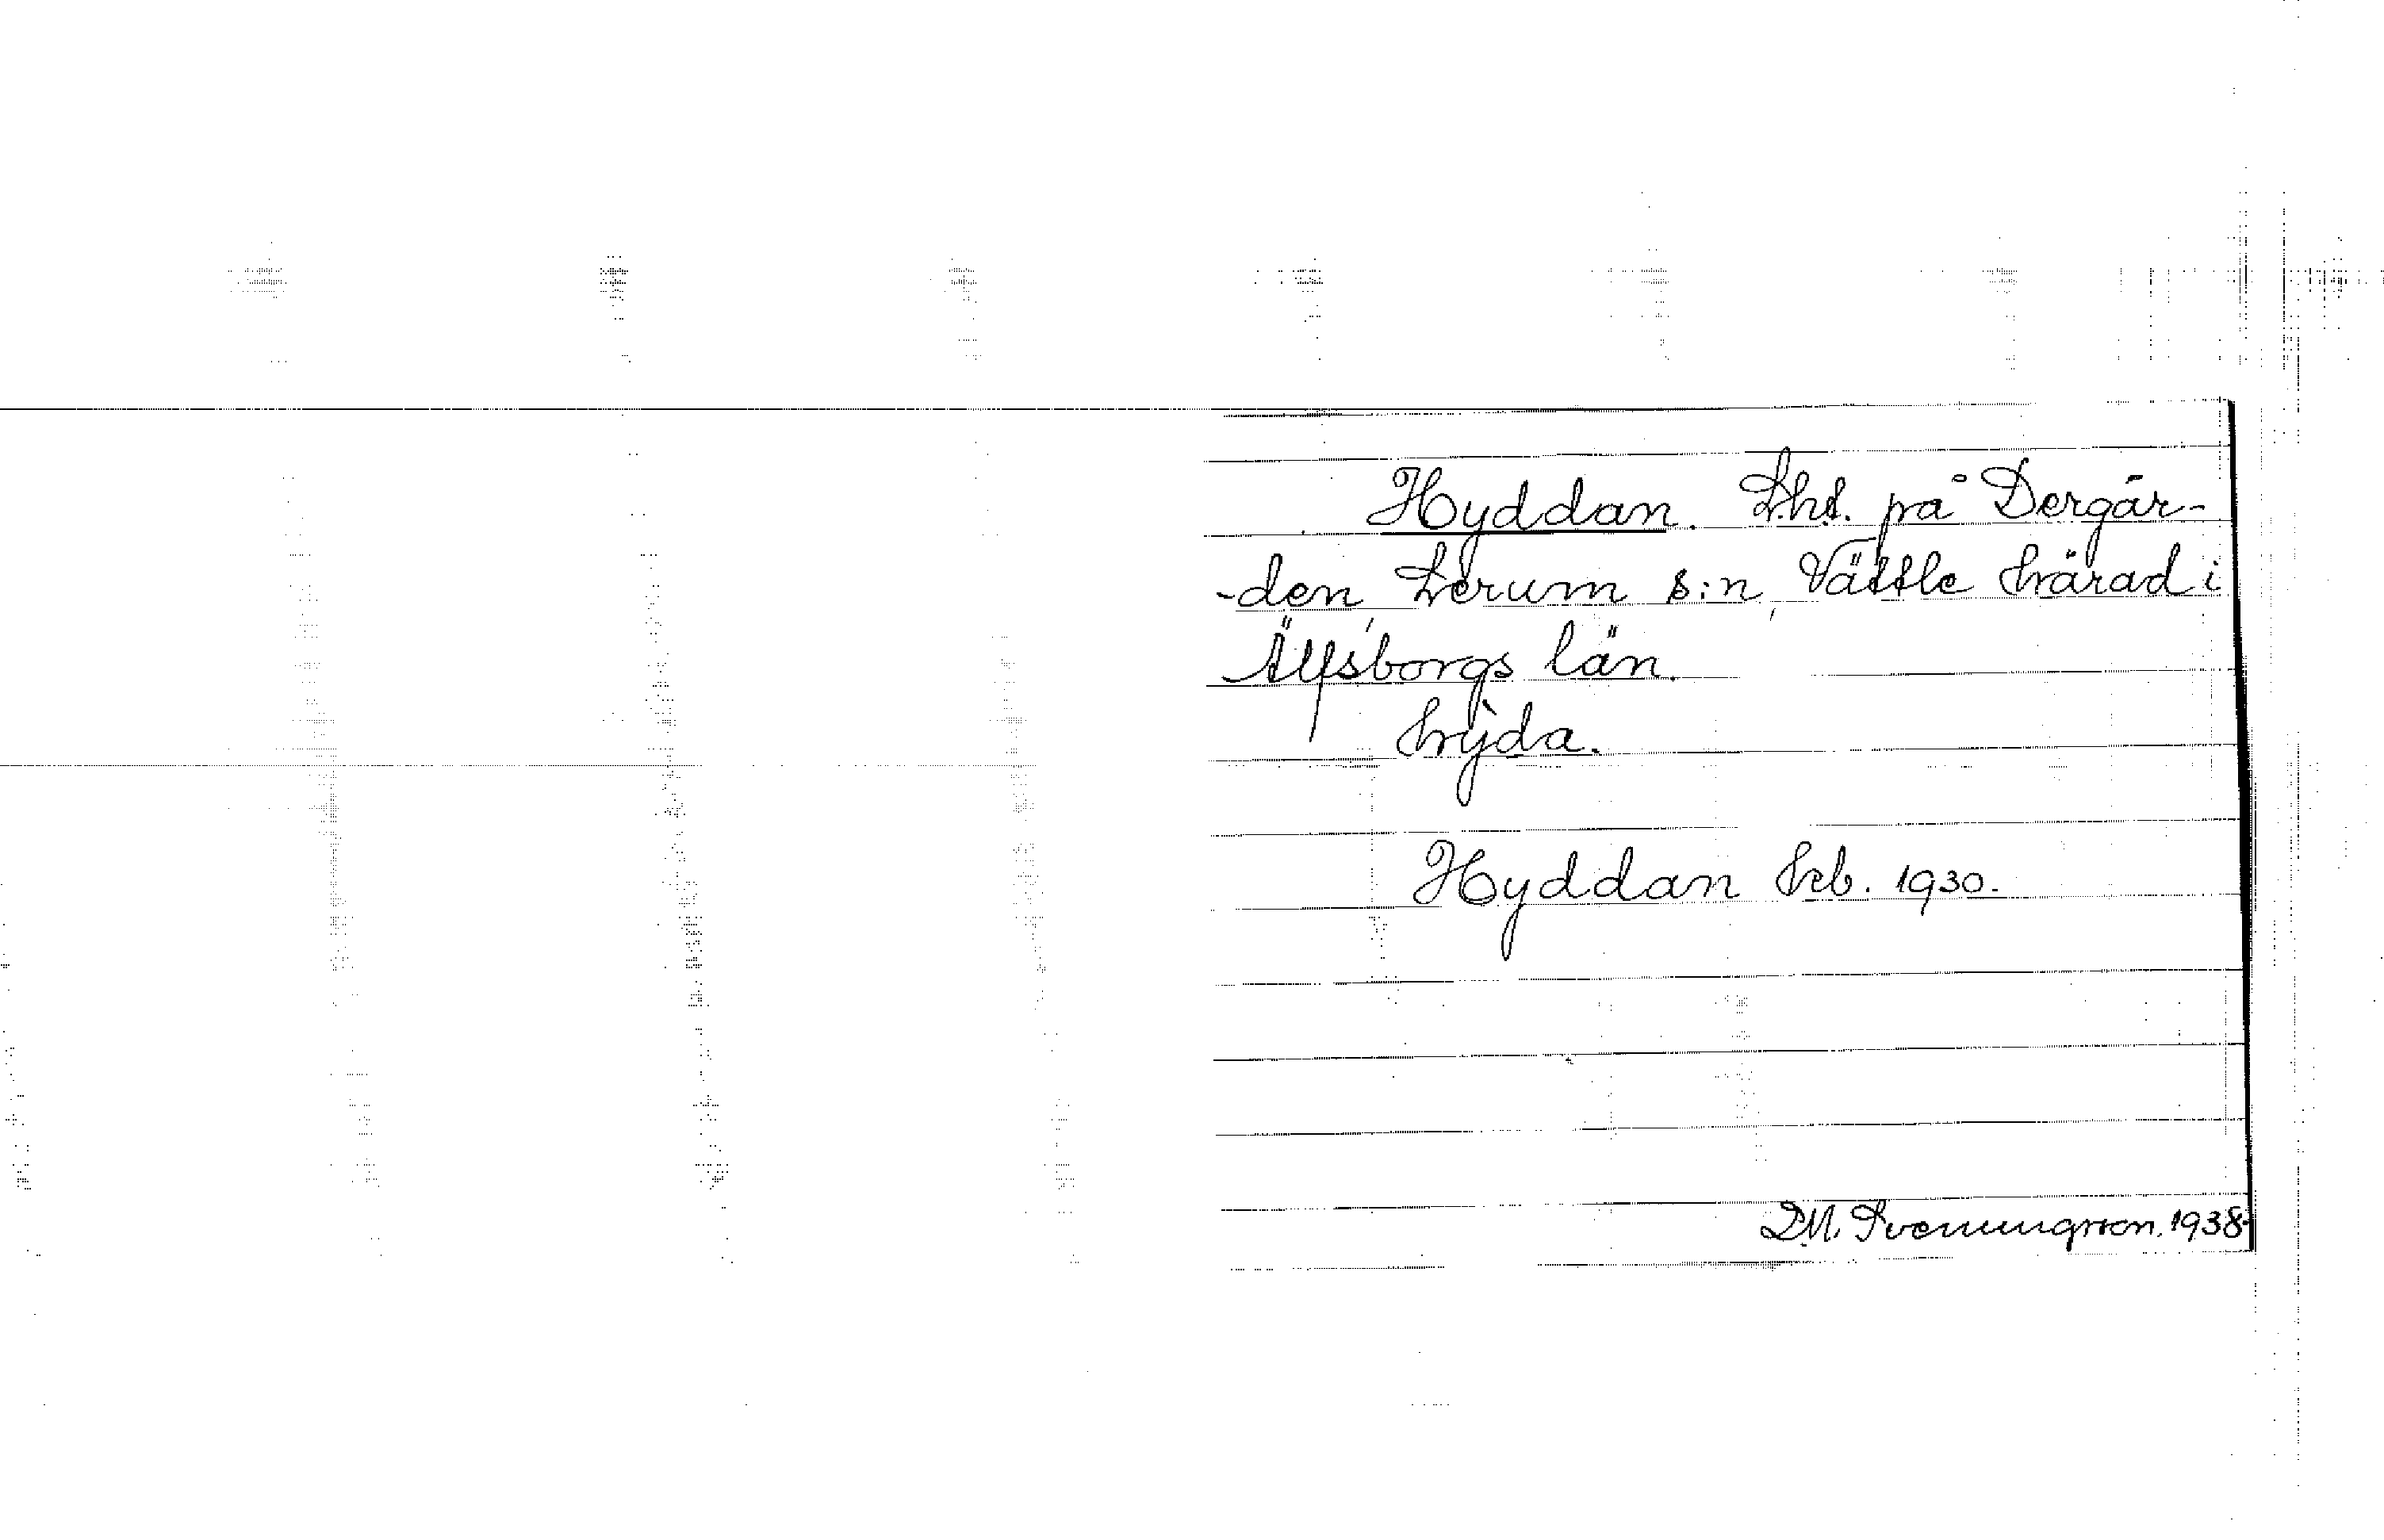 Hyddan. Lht. på Dergår-
-den, Lerum s:n, Vättle härad i
Älfsborgs län.
hỳda.
Hyddan Frb. 1930.
D.M. Svenungsson. 1938.